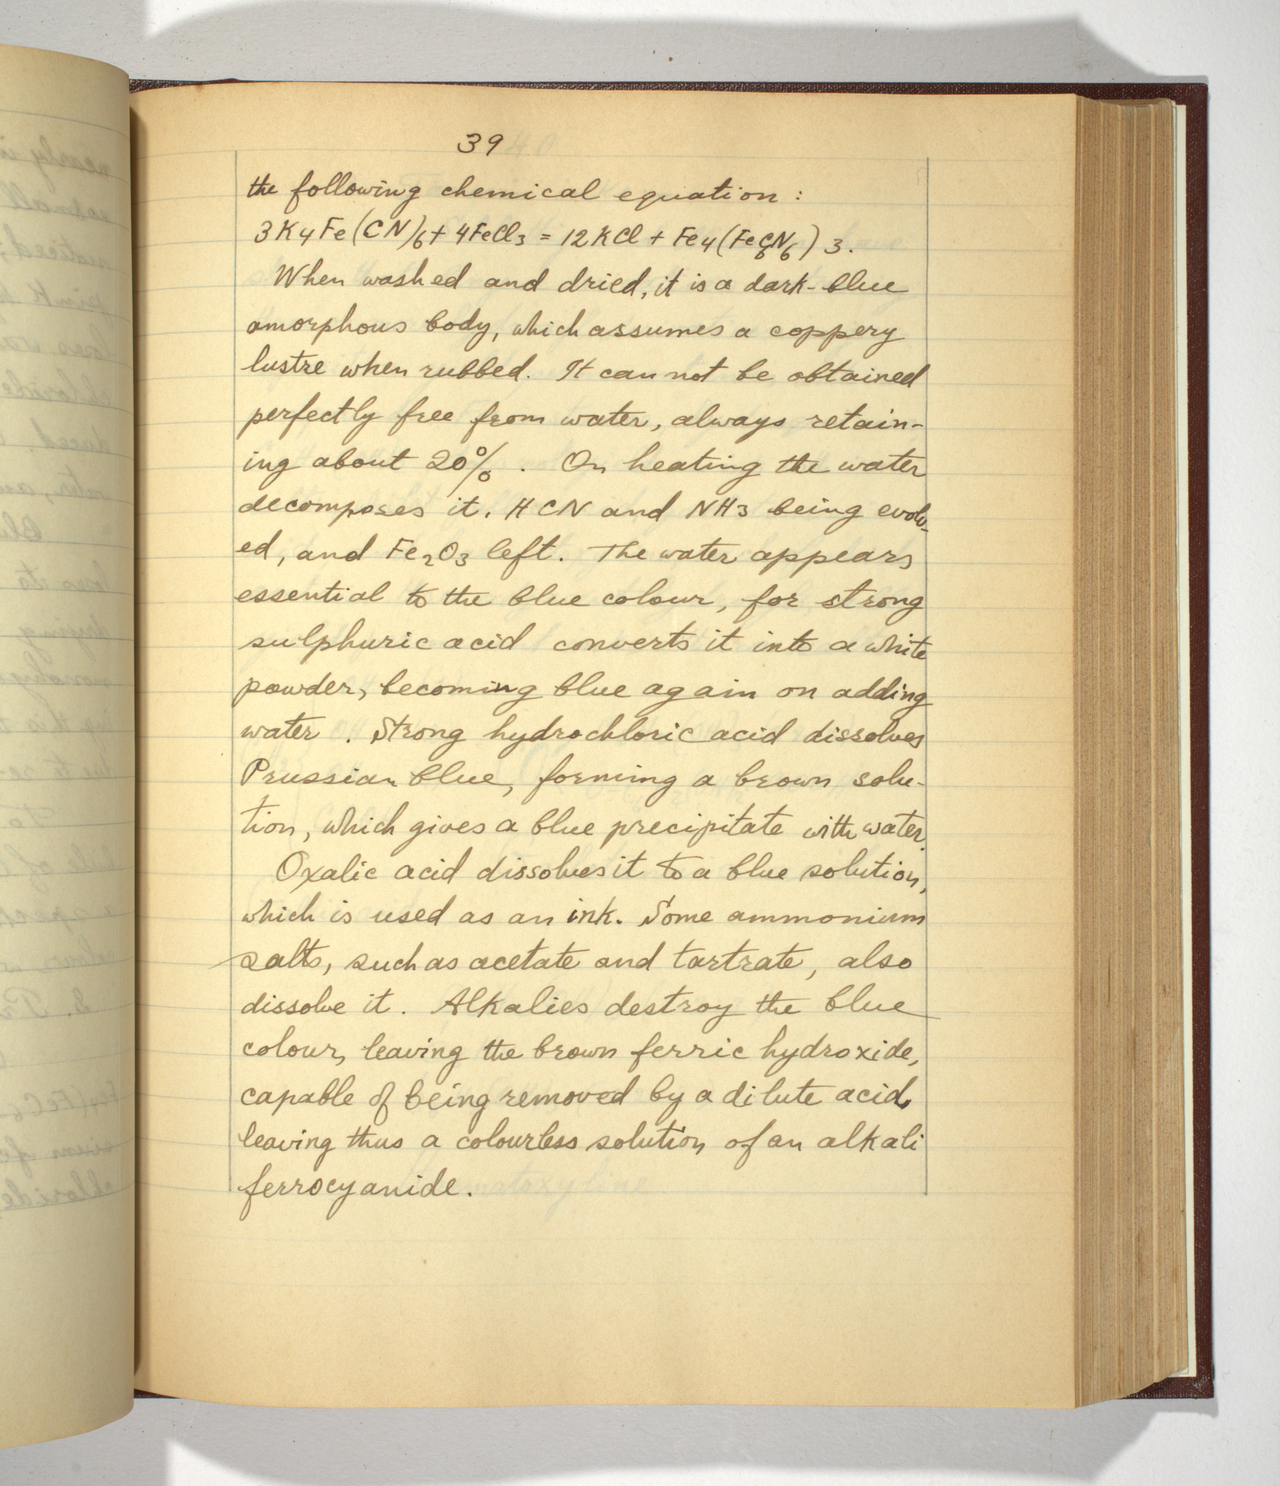 39
the following chemical equation:
3K4Fe(CN)6 + 4FeCl3 = 12KCl + Fe4(FeC6N6)3.
When washed and dried, it is a dark-blue
amorphous body, which assumes a coppery
lustre when rubbed. It can not be obtained
perfectly free from water, always retain-
ing about 20%. On heating the water
decomposes it, HCN and NH3 being evolv-
ed, and Fe2O3 left. The water appears
essential to the blue colour, for strong
sulphuric acid converts it into a white
powder, becoming blue again on adding
water. Strong hydrochloric acid dissolves
Prussian blue, forming a brown solu-
tion, which gives a blue precipitate with water.
Oxalic acid dissolves it to a blue solution,
which is used as an ink. Some ammonium
salts, such as acetate and tartrate, also
dissolve it. Alkalies destroy the blue
colour, leaving the brown ferric hydroxide,
capable of being removed by a dilute acid,
leaving thus a colourless solution of an alkali
ferrocyanide.